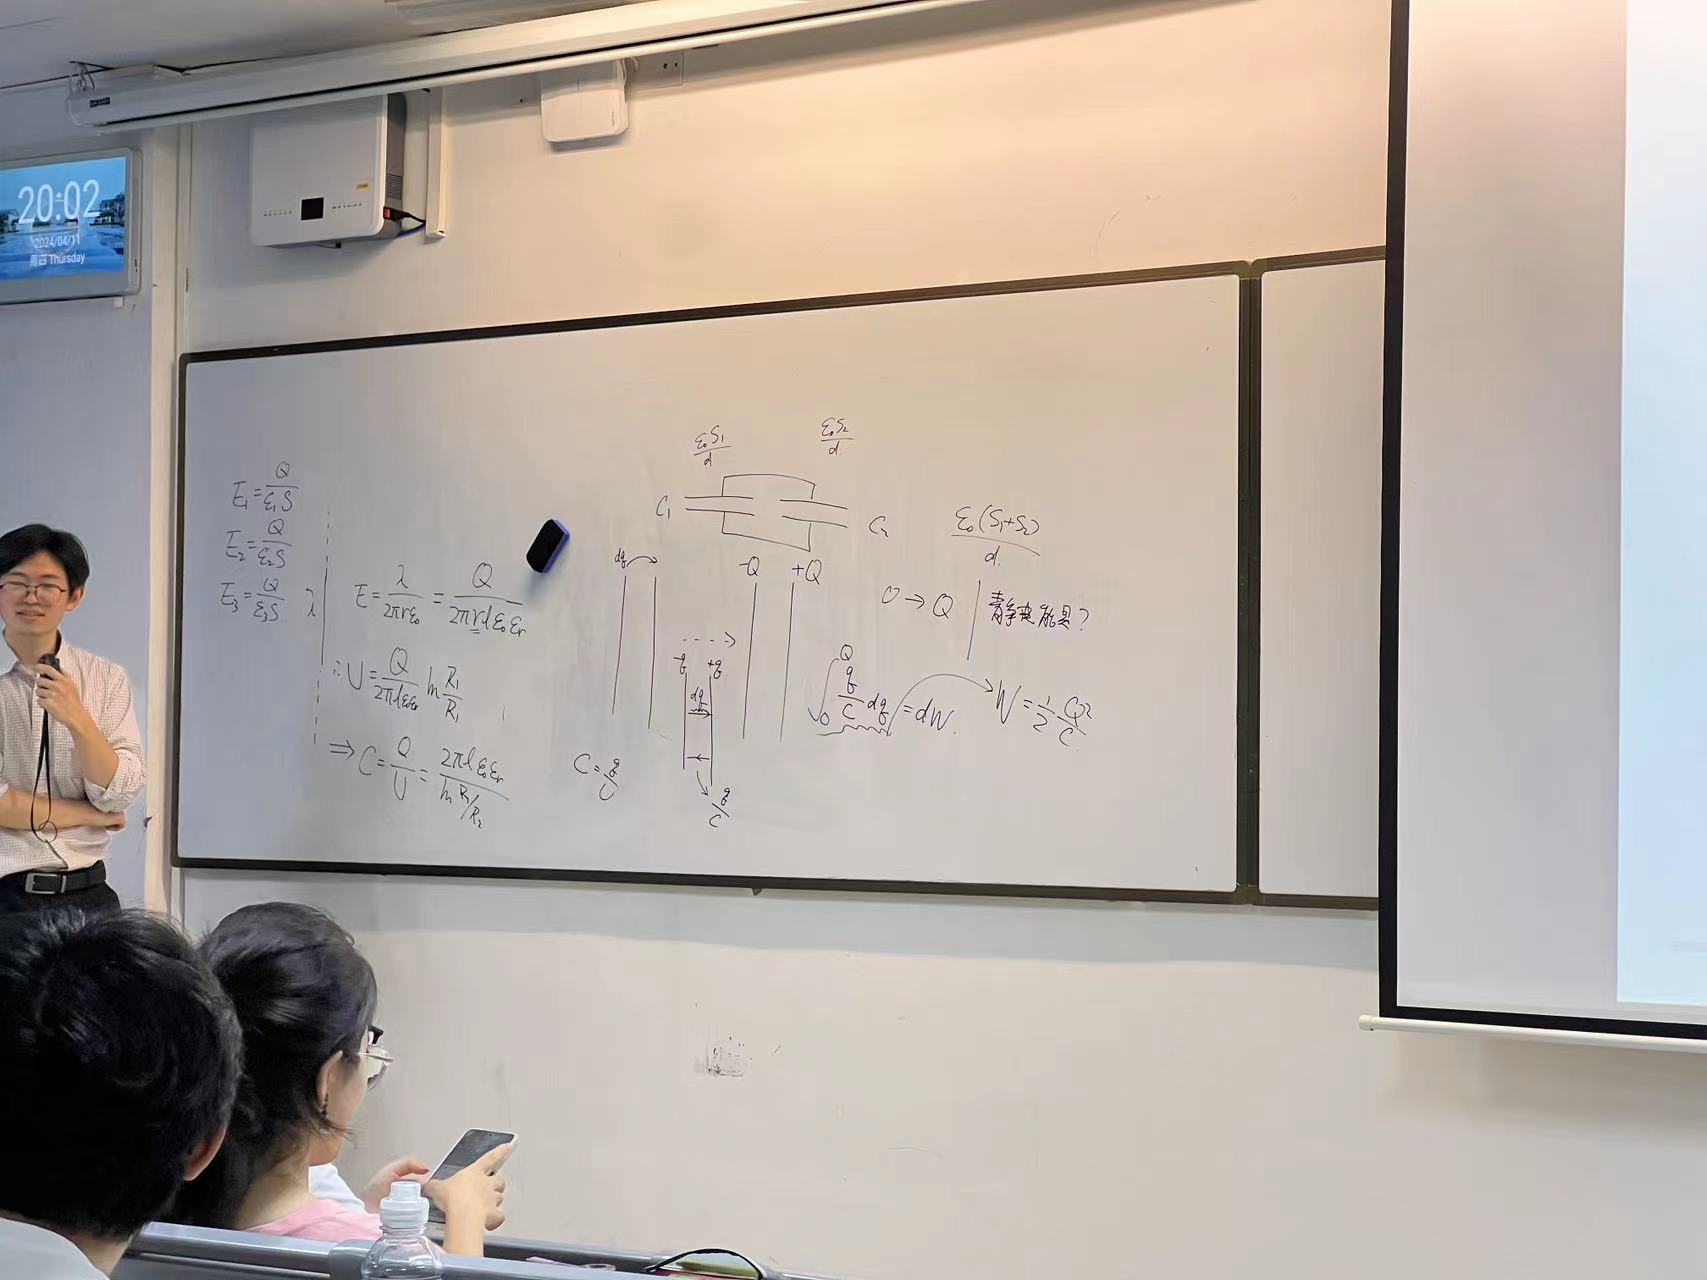 20:02
2024/04/11
周四 Thursday
E₁=Q/ε₁S
E₂=Q/ε₂S
E₃=Q/ε₃S
λ
E=λ/2πrε₀=Q/2πrlε₀εᵣ
∴U=Q/2πlε₀εᵣ ln R₁/R₁
⇒C=Q/U=2πlε₀εᵣ/ln R₁/R₂
ε₀S₁/d
ε₀S₂/d
C₁
C₂
ε₀(S₁+S₂)/d
dq
-Q
+Q
0→Q
静电能是?
-q
+q
dq
C=q/U
q/C
∫₀Q q/C dq=dW
W=1/2 Q²/C